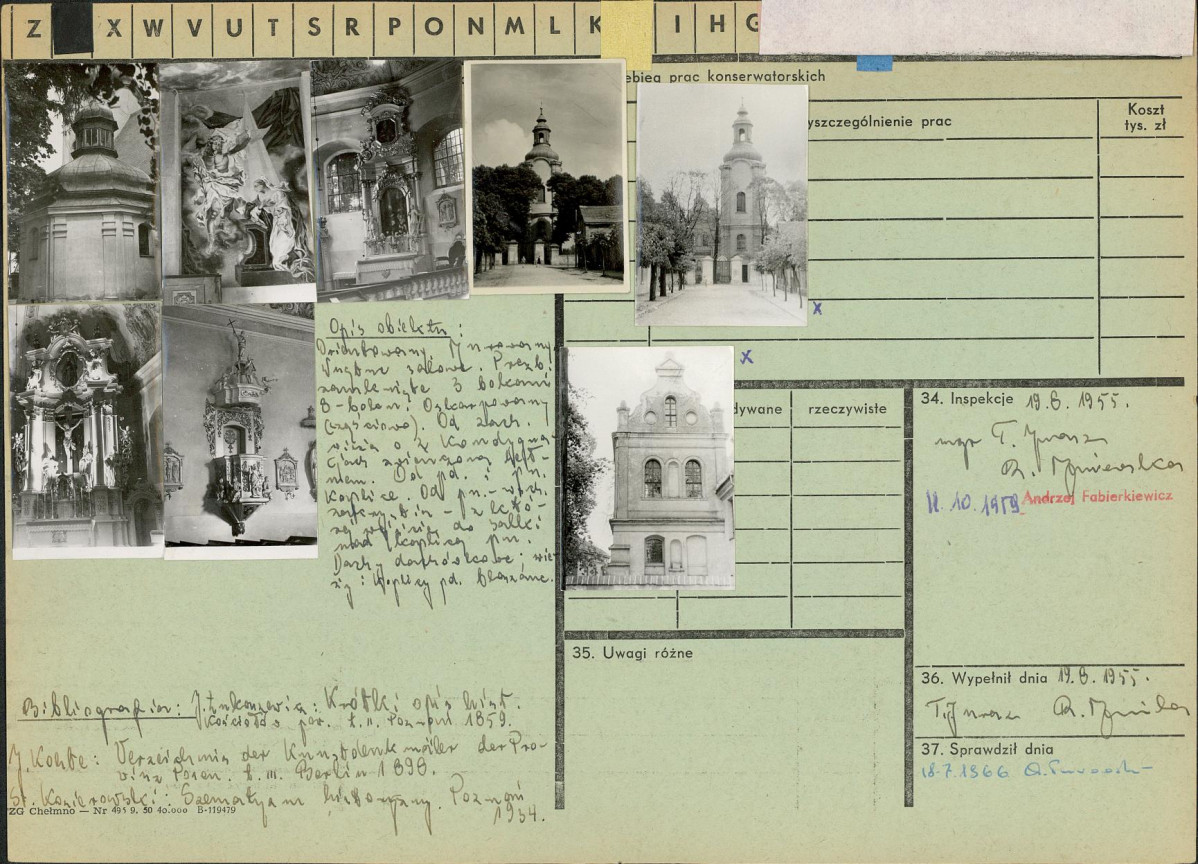 Z X W V U T S R P O N M L K I H G
ebieg prac konserwatorskich
yszczególnienie prac
Koszt
tys. zł
x
x
Opis obiektu:
Orientowany. Murowany
Wnętrze salowe. Prezb.
zamknięte 3 bokami
8-boku; Oskarpowany
(częściowo). Od zach.
wieża o 2 kondygna-
cjach zwieńczona heł-
mem. Od pd. i pn.
kaplice. Od pn.-wsch.
do salki
nad kaplicą pn.
Dach dachówkowe; wie-
ży i kaplicy pd. blaszane.
dywane
rzeczywiste
34. Inspekcje 19.8.1955.
mgr T.
R.
12.10.1959 Andrzej Fabierkiewicz
35. Uwagi różne
36. Wypełnił dnia 19.8.1955.
37. Sprawdził dnia
18-7.1966
Bibliografia: J. Łukaszewicz: Krótki opis hist.
kościołów par. t. II. Poznań 1859.
J. Kohte: Verzeichnis der Kunstdenkmäler der Pro-
vinz Posen. t. III. Berlin 1898.
St. Kozierowski: Szematyzm historyczny. Poznań
1934.
ZG Chełmno — Nr 495 9. 50 40.000 B-119479